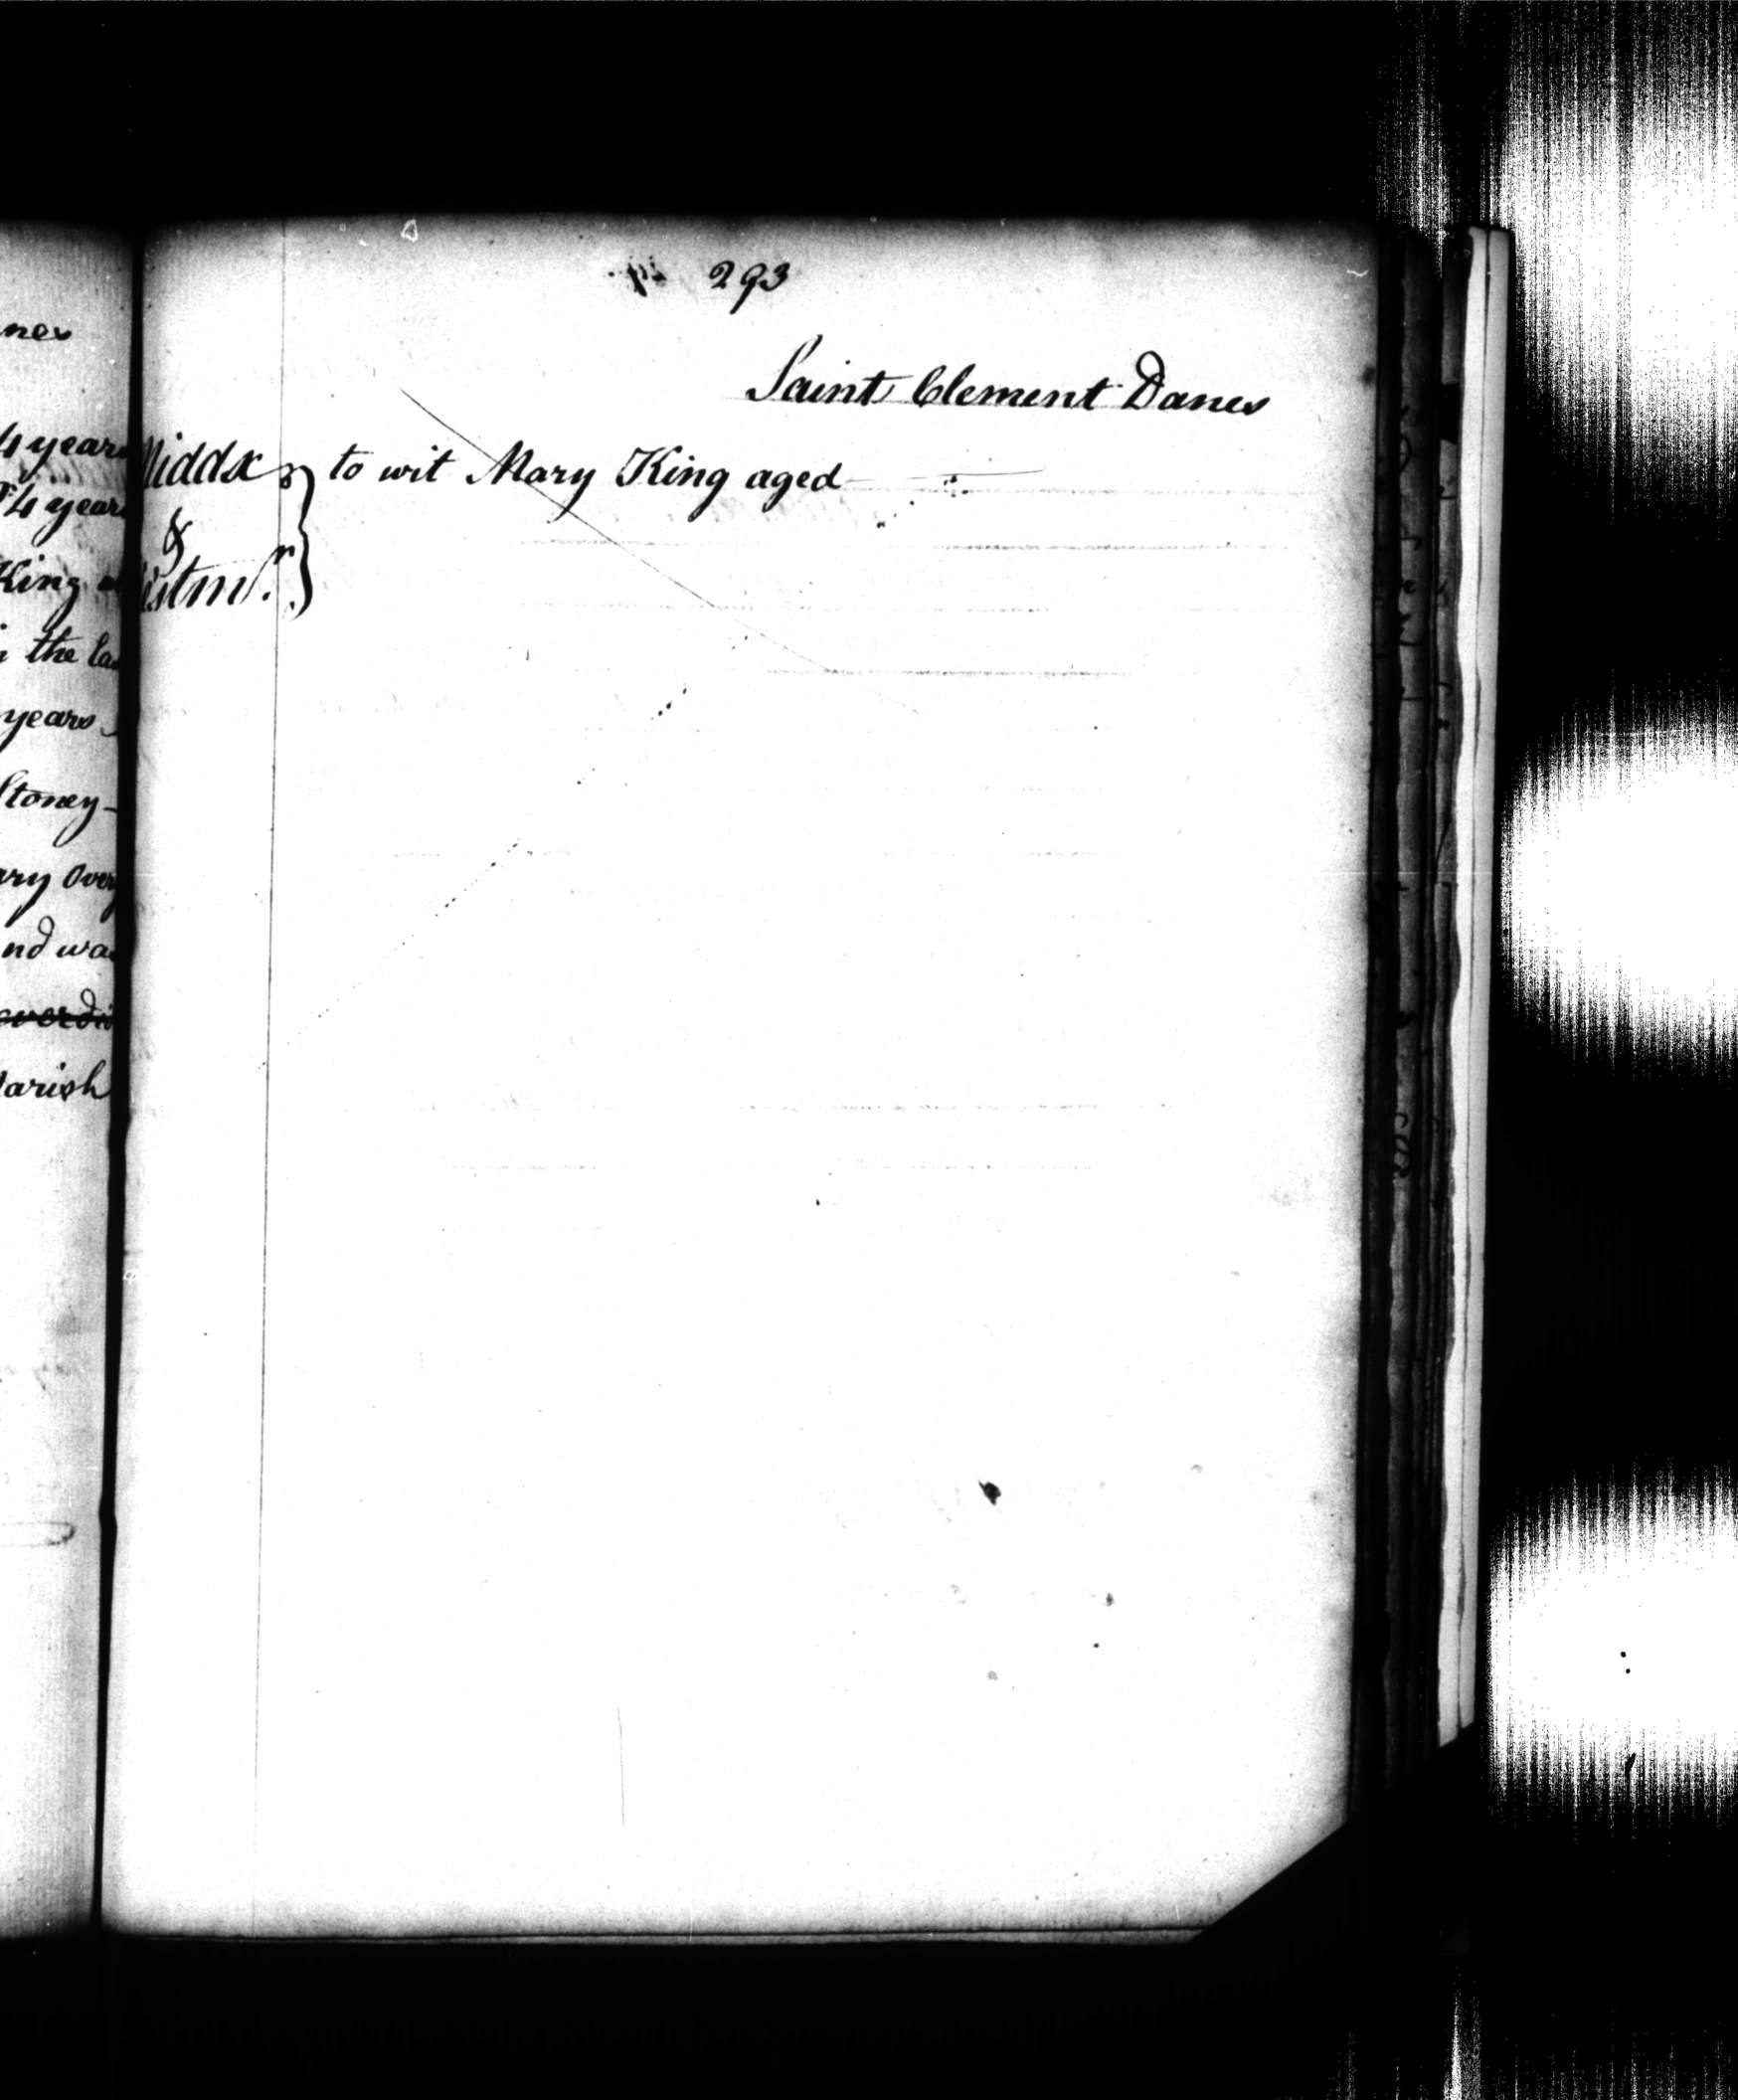 nes
4 years
4 years
King
in the la
years
Stoney
ary Over
nd was
Parish
293
Saint Clement Danes
Middx to wit Mary King aged
&
Westmr.